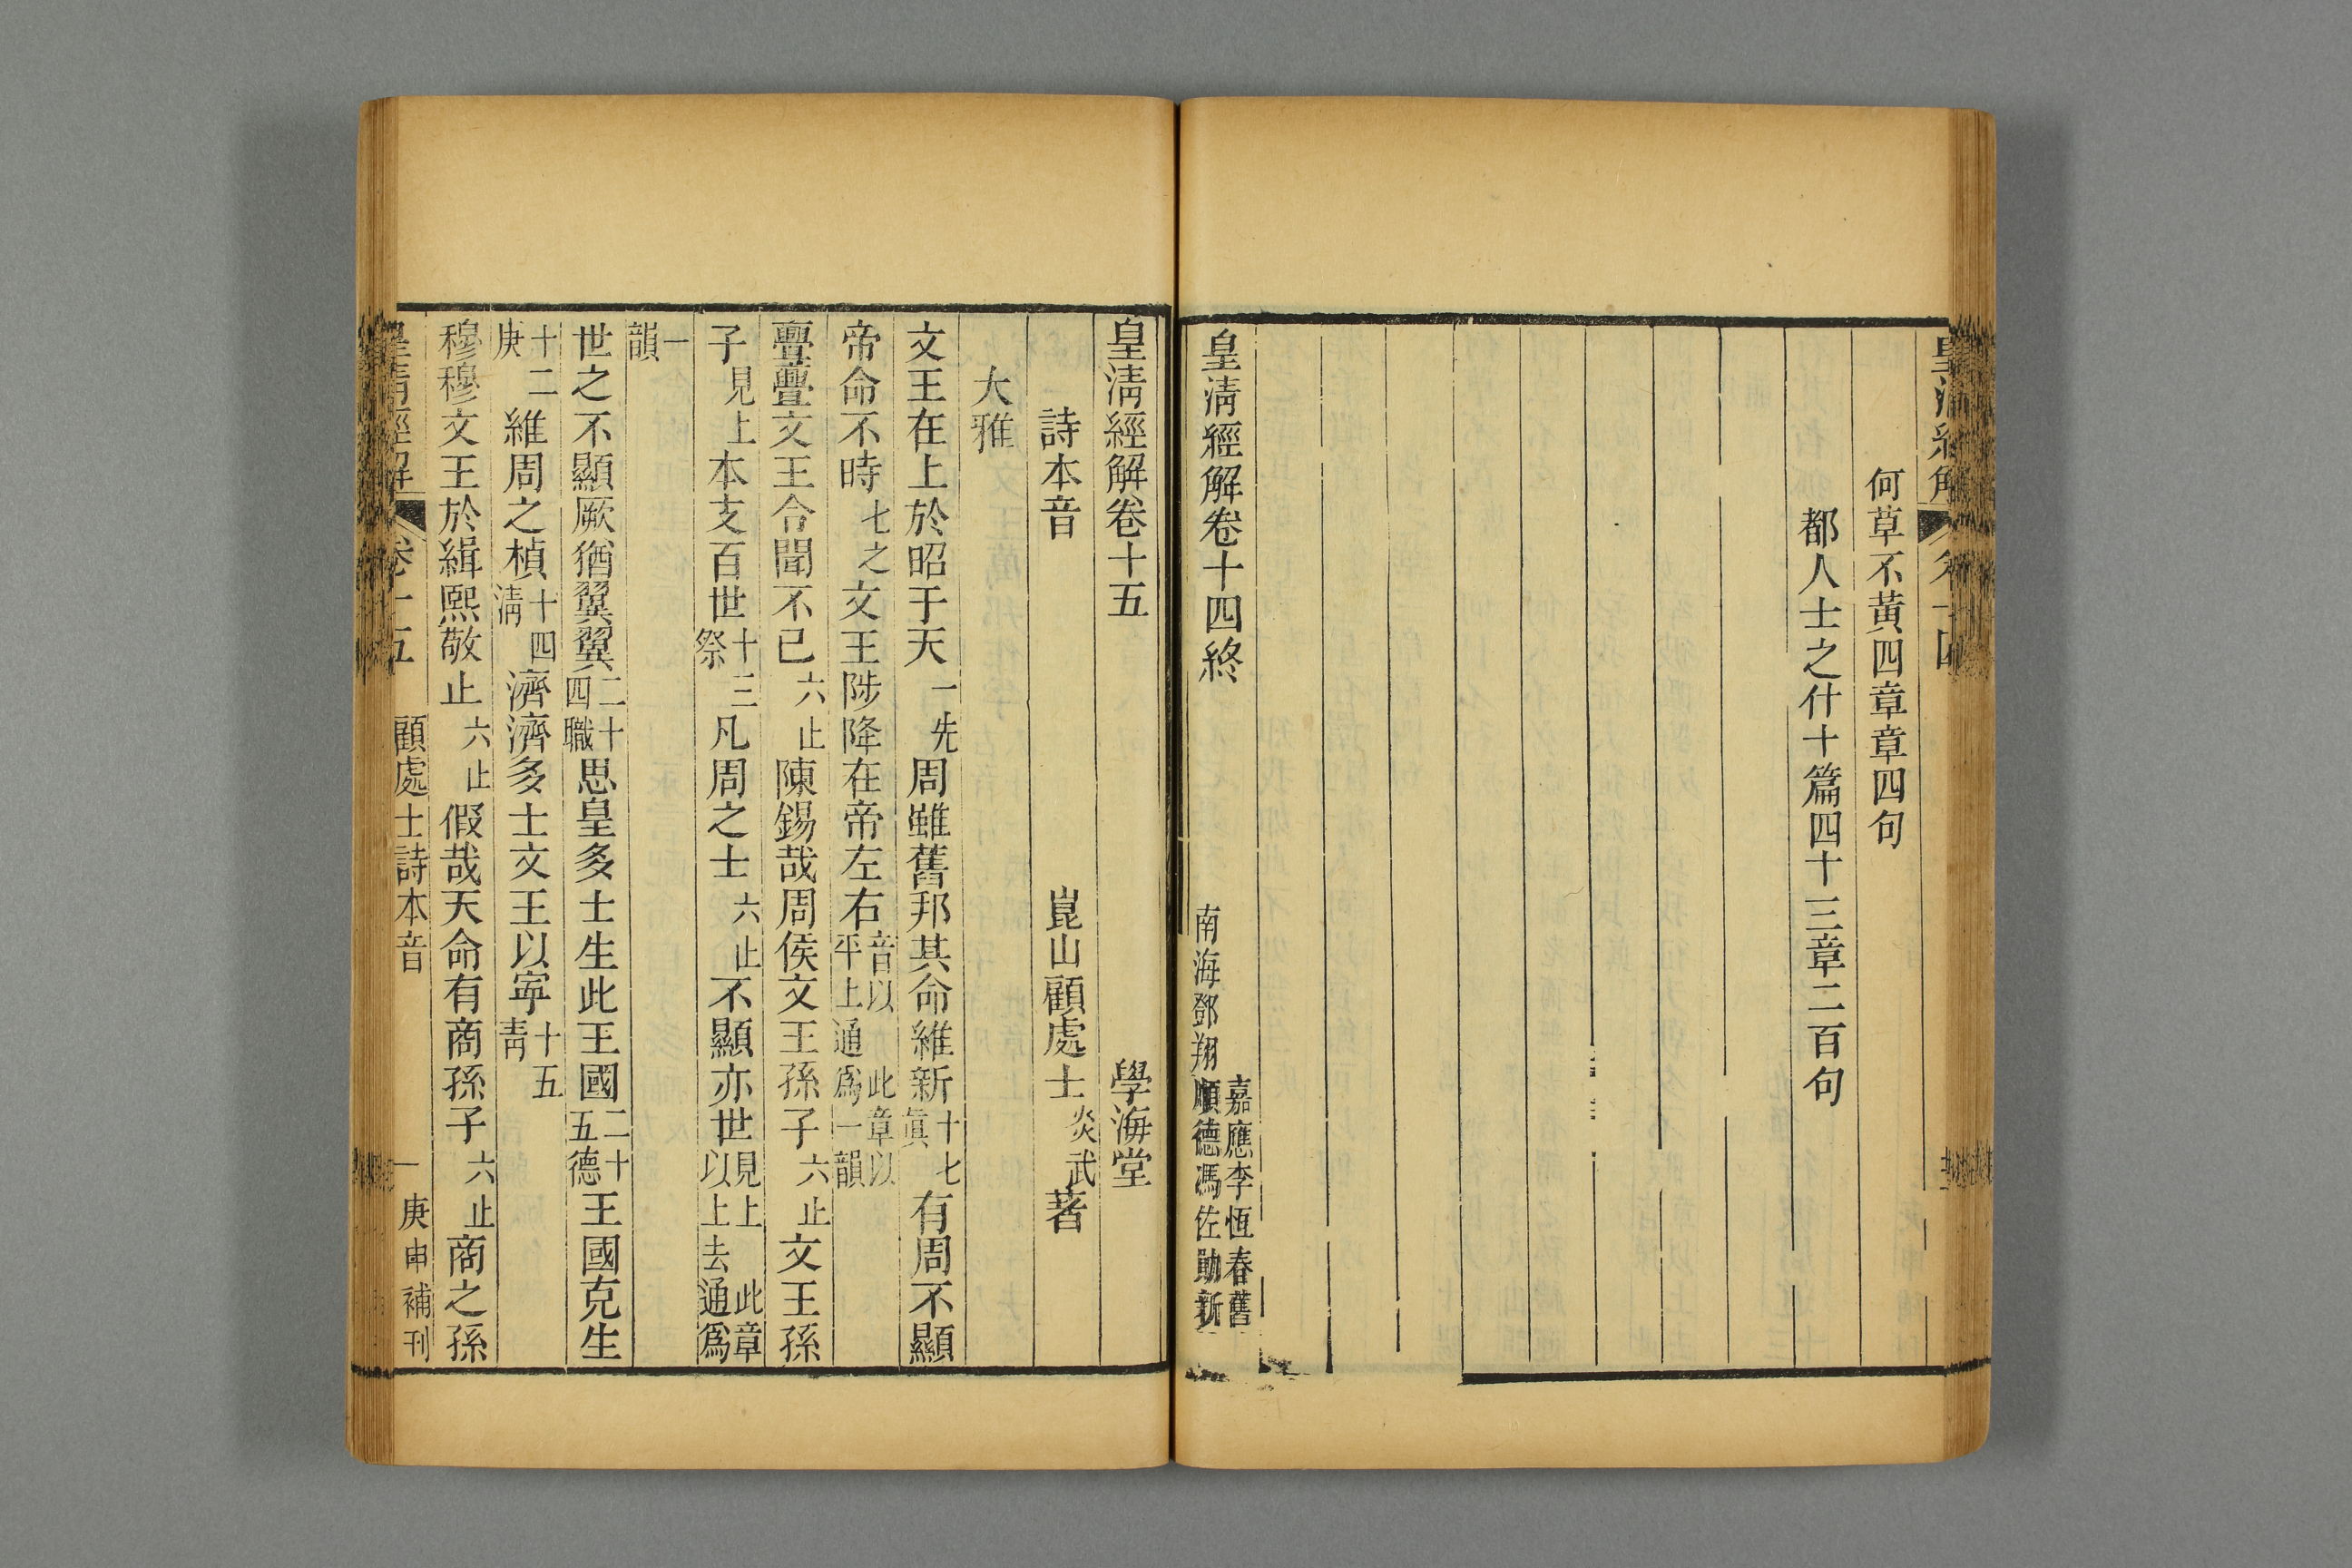 何草不黃四章章四句
都人士之什十篇四十三章二百句
皇淸經解卷十四終
嘉應李恆春舊
南海鄧翔順德馮佐勛新
皇淸經解卷十五
學海堂
詩本音
崑山顧處士炎武著
大雅
文王在上於昭于天一先周雖舊邦其命維新十七眞有周不顯
帝命不時七之文王陟降在帝左右音以 此章以平上通爲一韻
亹亹文王令聞不已六止陳錫哉周侯文王孫子六止文王孫
子見上本支百世十三祭凡周之士六止不顯亦世見上 此章以上去通爲
一韻
世之不顯厥猶翼翼二十四職思皇多士生此王國二十五德王國克生
十二庚維周之楨十四淸濟濟多士文王以寧十五靑
穆穆文王於緝熙敬止六止假哉天命有商孫子六止商之孫
皇淸經解
卷十五
顧處士詩本音
一
庚申補刊